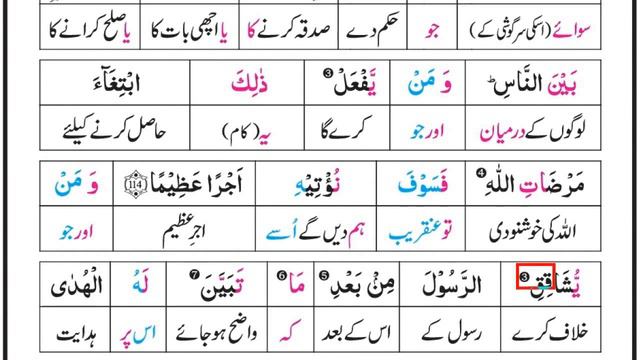 سوائے (اسکی سرگوشی کے) جو حکم دے صدقہ کرنے کا یا اچھی بات کا یا صلح کرانے کا
بَيْنَ النَّاسِ ؕ وَ مَنْ يَّفْعَلْ ③ ذٰلِكَ ابْتِغَآءَ
لوگوں کے درمیان اور جو کرے گا یہ (کام) حاصل کرنے کیلئے
مَرْضَاتِ اللّٰهِ ④ فَسَوْفَ نُؤْتِيْهِ اَجْرًا عَظِيْمًا ﴿114﴾ وَ مَنْ
اللہ کی خوشنودی تو عنقریب ہم دیں گے اُسے اجرِ عظیم اور جو
يُّشَاقِقِ ③ الرَّسُوْلَ مِنْۢ بَعْدِ ⑤ مَا ⑥ تَبَيَّنَ ⑦ لَهُ الْهُدٰى
خلاف کرے رسول کے اس کے بعد کہ واضح ہو جائے اس پر ہدایت